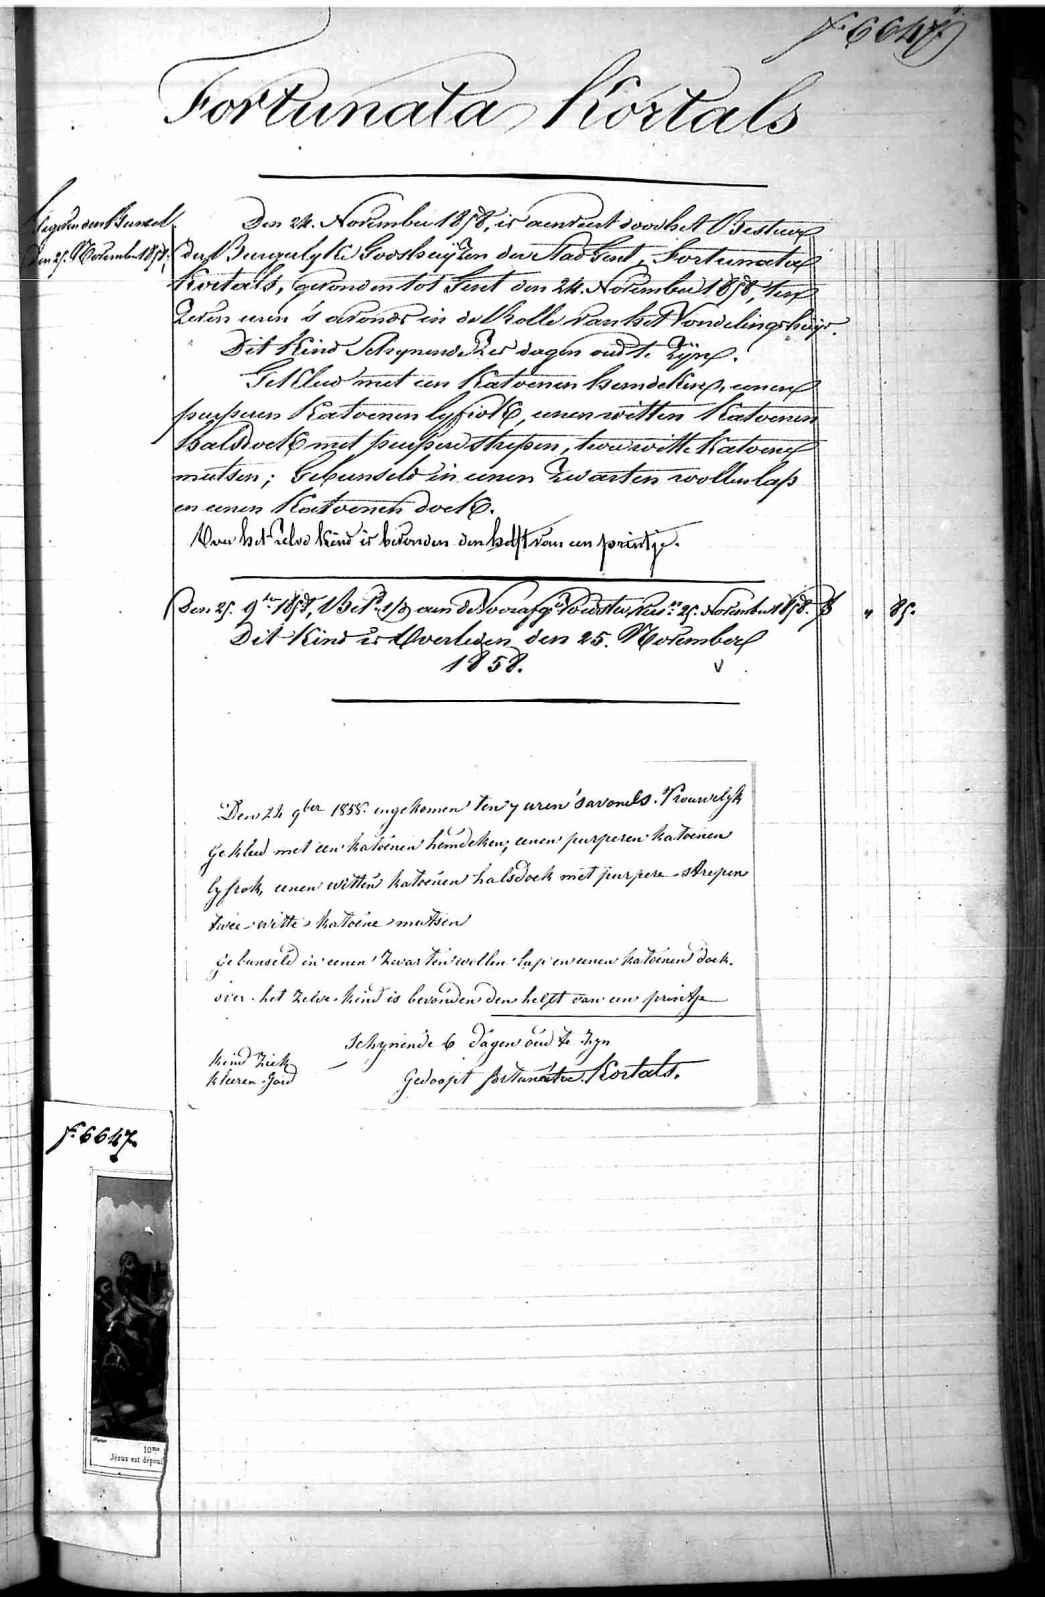 f. 6647.
Fortunata Kortals
Gegeven den Bunsel
den 25. November 1858,
Den 24. November 1858, is aenveert door het Bestuer
der Burgerlyke Godshuijzen der Stad Gent, Fortunata
Kortals, gevonden tot Gent den 24. November 1858, ten
zeven uren 's avonds in de Rolle van het Vondelingshuijs.
Dit Kind Schynende Zes dagen oud te Zijn.
Gekleed met een Katoenen hemdeken, eenen
purperen Katoenen lyfrok, eenen witten Katoenen
halsdoek met purpere strepen, twee witte Katoene
mutsen; Gebunseld in eenen Zwarten wollen lap
en eenen Katoenen doek.
Over het Zelve Kind is bevonden den helft van een printje.
Den 25. 9bre 1858, Betd aen de Voorafge 25. November 1858. f " 85.
Dit Kind is Overleden den 25. November
1858.
Den 24 9ber 1858. ingekomen ten 7 uren 's avonds. Vrouwelyk
Gekleed met een katoenen hemdeken; eenen purperen katoenen
lyfrok, eenen witten katoenen halsdoek met purpere strepen
twee witte katoene mutsen
gebunseld in eenen zwarten wollen lap en eenen katoenen doek.
over het zelve kind is bevonden den helft van een printje
Schynende 6 dagen oud te zyn
Kind Ziek
kleeren Goed
Gedoopt fortunata Kortals.
f. 6647.
10me
Jésus est dépouil